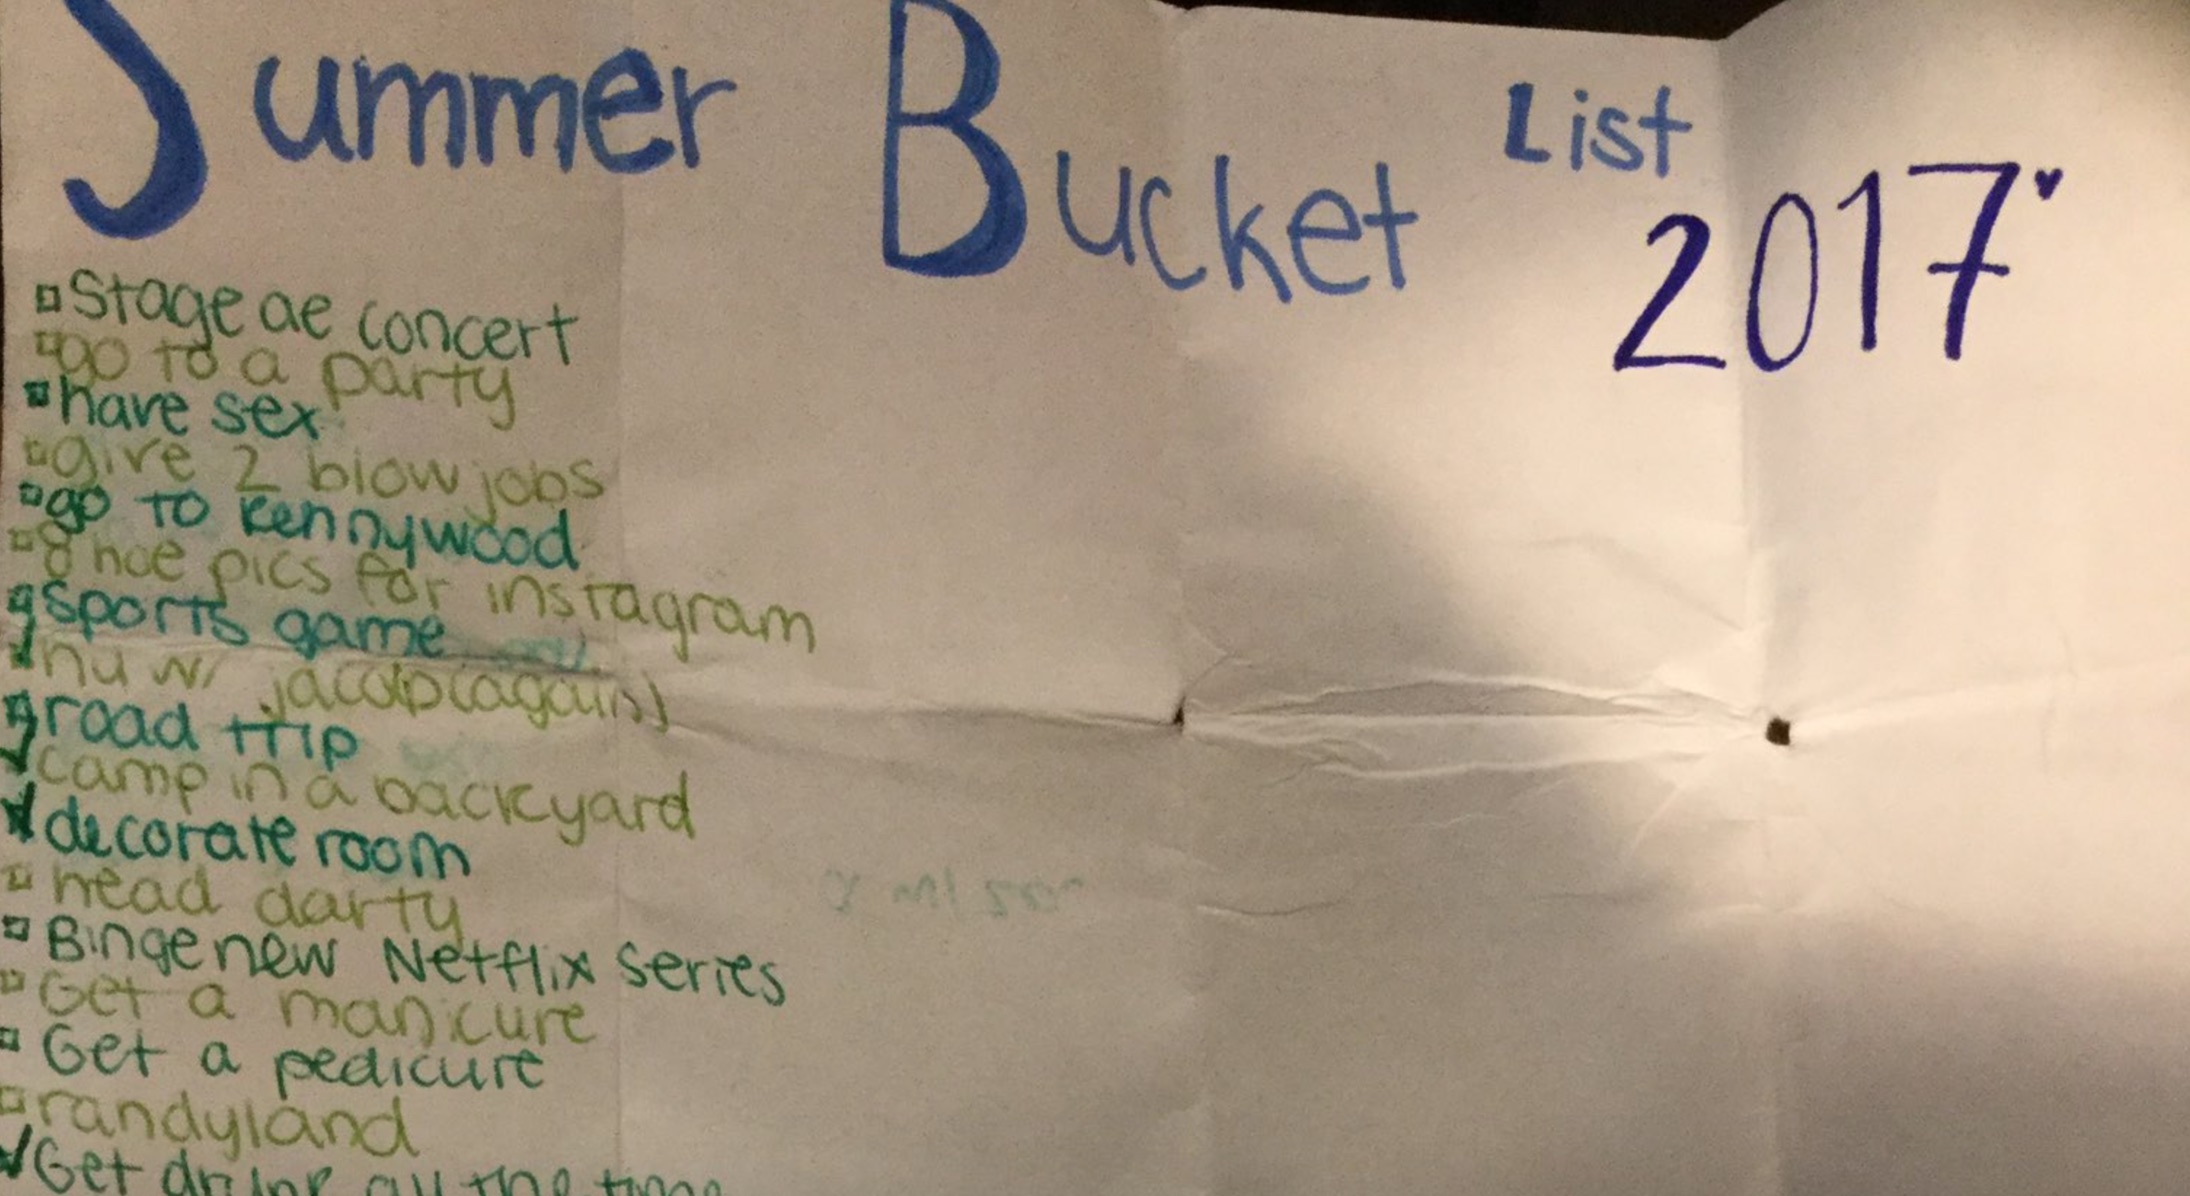 Summer Bucket List
2017
Stage ae concert
go to a party
have sex
give 2 blow jobs
go to Kennywood
8 hoe pics for instagram
Sports game
hu w/ jacob (again)
road trip
camp in a backyard
decorate room
head darty
Binge new Netflix series
Get a manicure
Get a pedicure
randyland
Get all the time